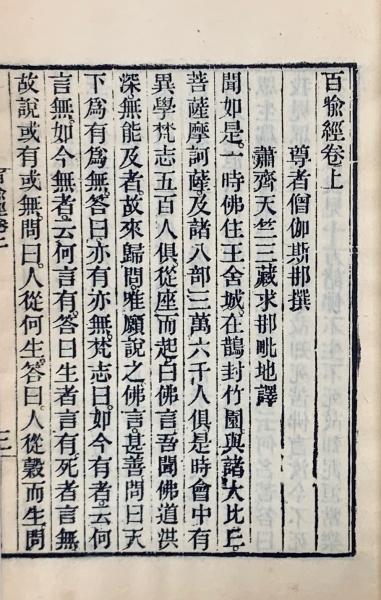 百喻經卷上
尊者僧伽斯那撰
蕭齊天竺三藏求那毗地譯
聞如是。一時佛住王舍城。在鵲封竹園。與諸大比丘。
菩薩摩訶薩。及諸八部。三萬六千人俱。是時會中有
異學梵志五百人俱。從座而起。白佛言。吾聞佛道洪
深。無能及者。故來歸問。唯願說之。佛言。甚善。問曰。天
下為有為無。答曰。亦有亦無。梵志曰。如今有者。云何
言無。如今無者。云何言有。答曰。生者言有。死者言無。
故說或有或無。問曰。人從何生。答曰。人從穀而生。問
百喻經卷上